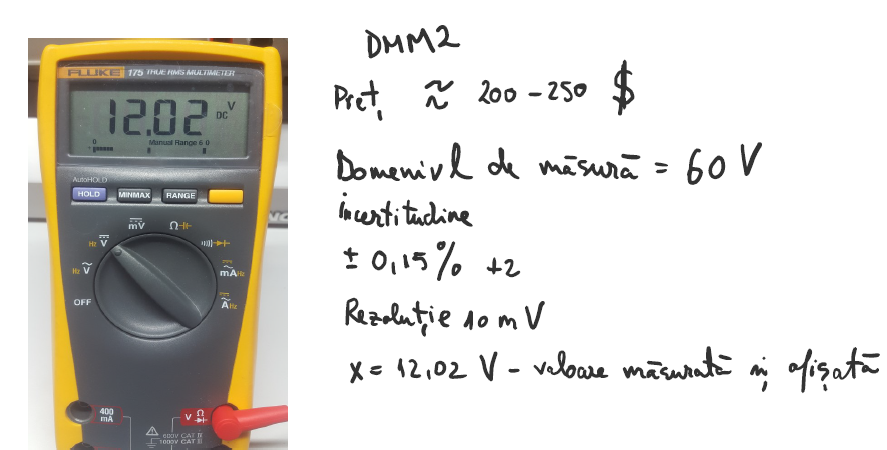 FLUKE 175 TRUE RMS MULTIMETER
12.02 DC V
0 Manual Range 6 0
AutoHOLD
HOLD MINMAX RANGE
mV Ω
Hz V
Hz V mA Hz
OFF A Hz
400 mA
V Ω
600V CAT III
1000V CAT II
DMM2
Preț ≈ 200 - 250 $
Domeniul de măsură = 60 V
incertitudine
± 0,15% +2
Rezoluție 10 mV
x = 12,02 V - valoare măsurată și afișată